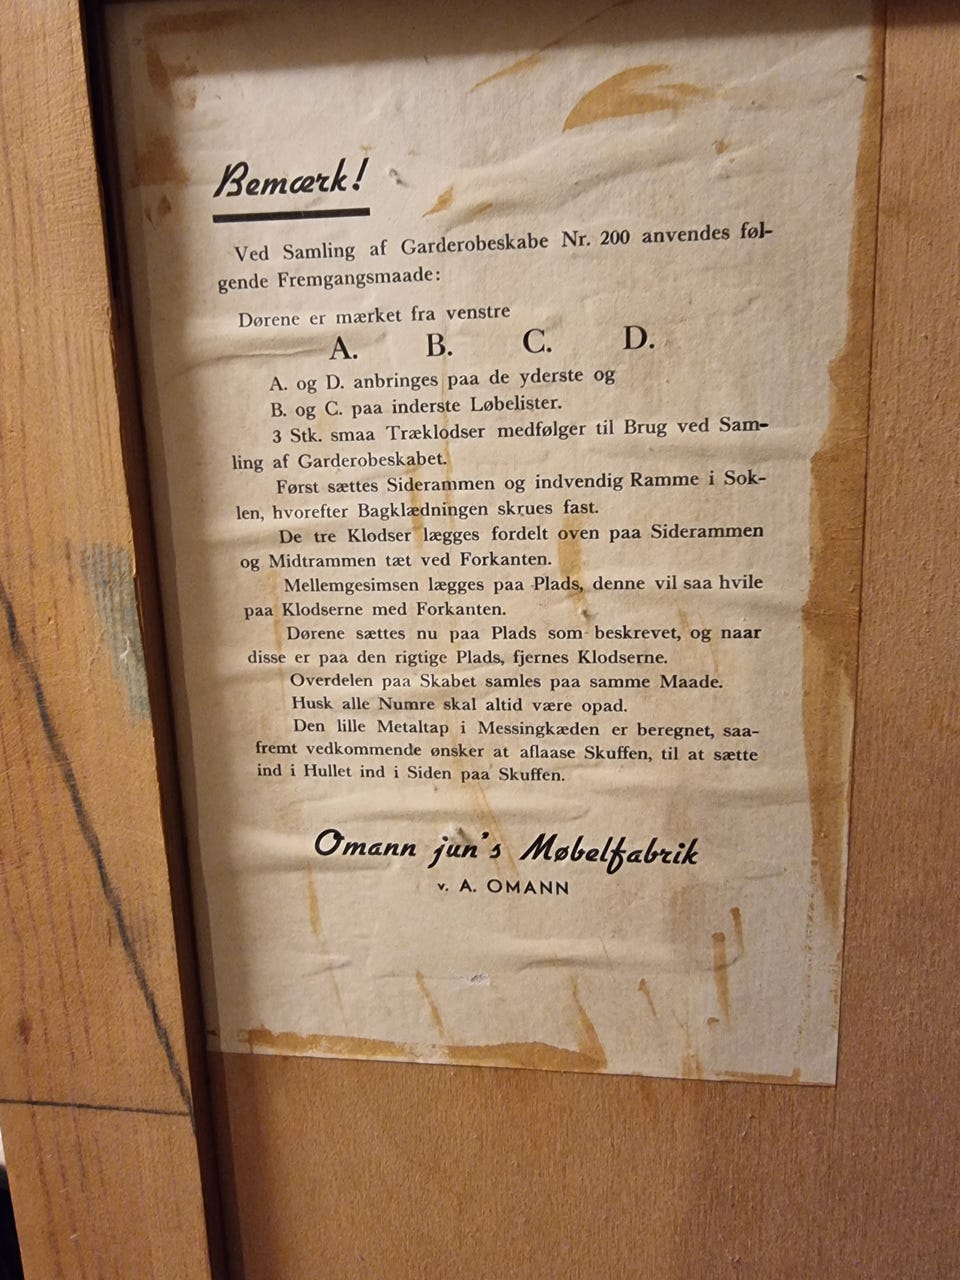 Bemærk!
Ved Samling af Garderobeskabe Nr. 200 anvendes føl-
gende Fremgangsmaade:
Dørene er mærket fra venstre
A. B. C. D.
A. og D. anbringes paa de yderste og
B. og C. paa inderste Løbelister.
3 Stk. smaa Træklodser medfølger til Brug ved Sam-
ling af Garderobeskabet.
Først sættes Siderammen og indvendig Ramme i Sok-
len, hvorefter Bagklædningen skrues fast.
De tre Klodser lægges fordelt oven paa Siderammen
og Midtrammen tæt ved Forkanten.
Mellemgesimsen lægges paa Plads, denne vil saa hvile
paa Klodserne med Forkanten.
Dørene sættes nu paa Plads som beskrevet, og naar
disse er paa den rigtige Plads, fjernes Klodserne.
Overdelen paa Skabet samles paa samme Maade.
Husk alle Numre skal altid være opad.
Den lille Metaltap i Messingkæden er beregnet, saa-
fremt vedkommende ønsker at aflaase Skuffen, til at sætte
ind i Hullet ind i Siden paa Skuffen.
Omann jun's Møbelfabrik
v. A. OMANN